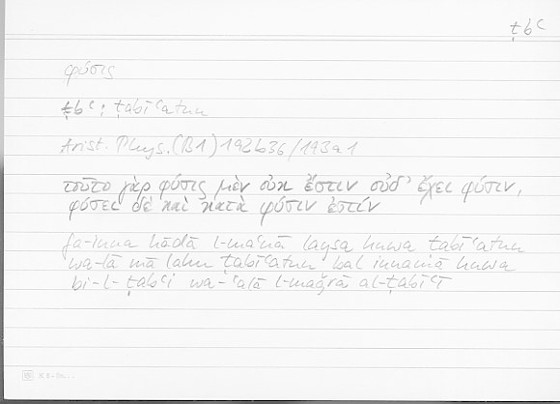 ṭbʿ
φύσις
ṭbʿ: ṭabīʿatun
Arist. Phys. (B1) 192b36/193a1
τοῦτο γὰρ φύσις μὲν οὐκ ἔστιν οὐδ' ἔχει φύσιν,
φύσει δὲ καὶ κατὰ φύσιν ἐστίν
fa-inna hāḏā l-maʿnā laysa huwa ṭabīʿatun
wa-lā mā lahu ṭabīʿatun bal innamā huwa
bi-l-ṭabʿi wa-ʿalā l-maǧrā al-ṭabīʿī